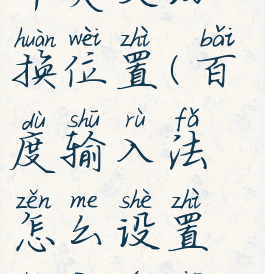 huàn wèi zhì bǎi
换位置(百
dù shū rù fǎ
度输入法
zěn me shè zhì
怎么设置